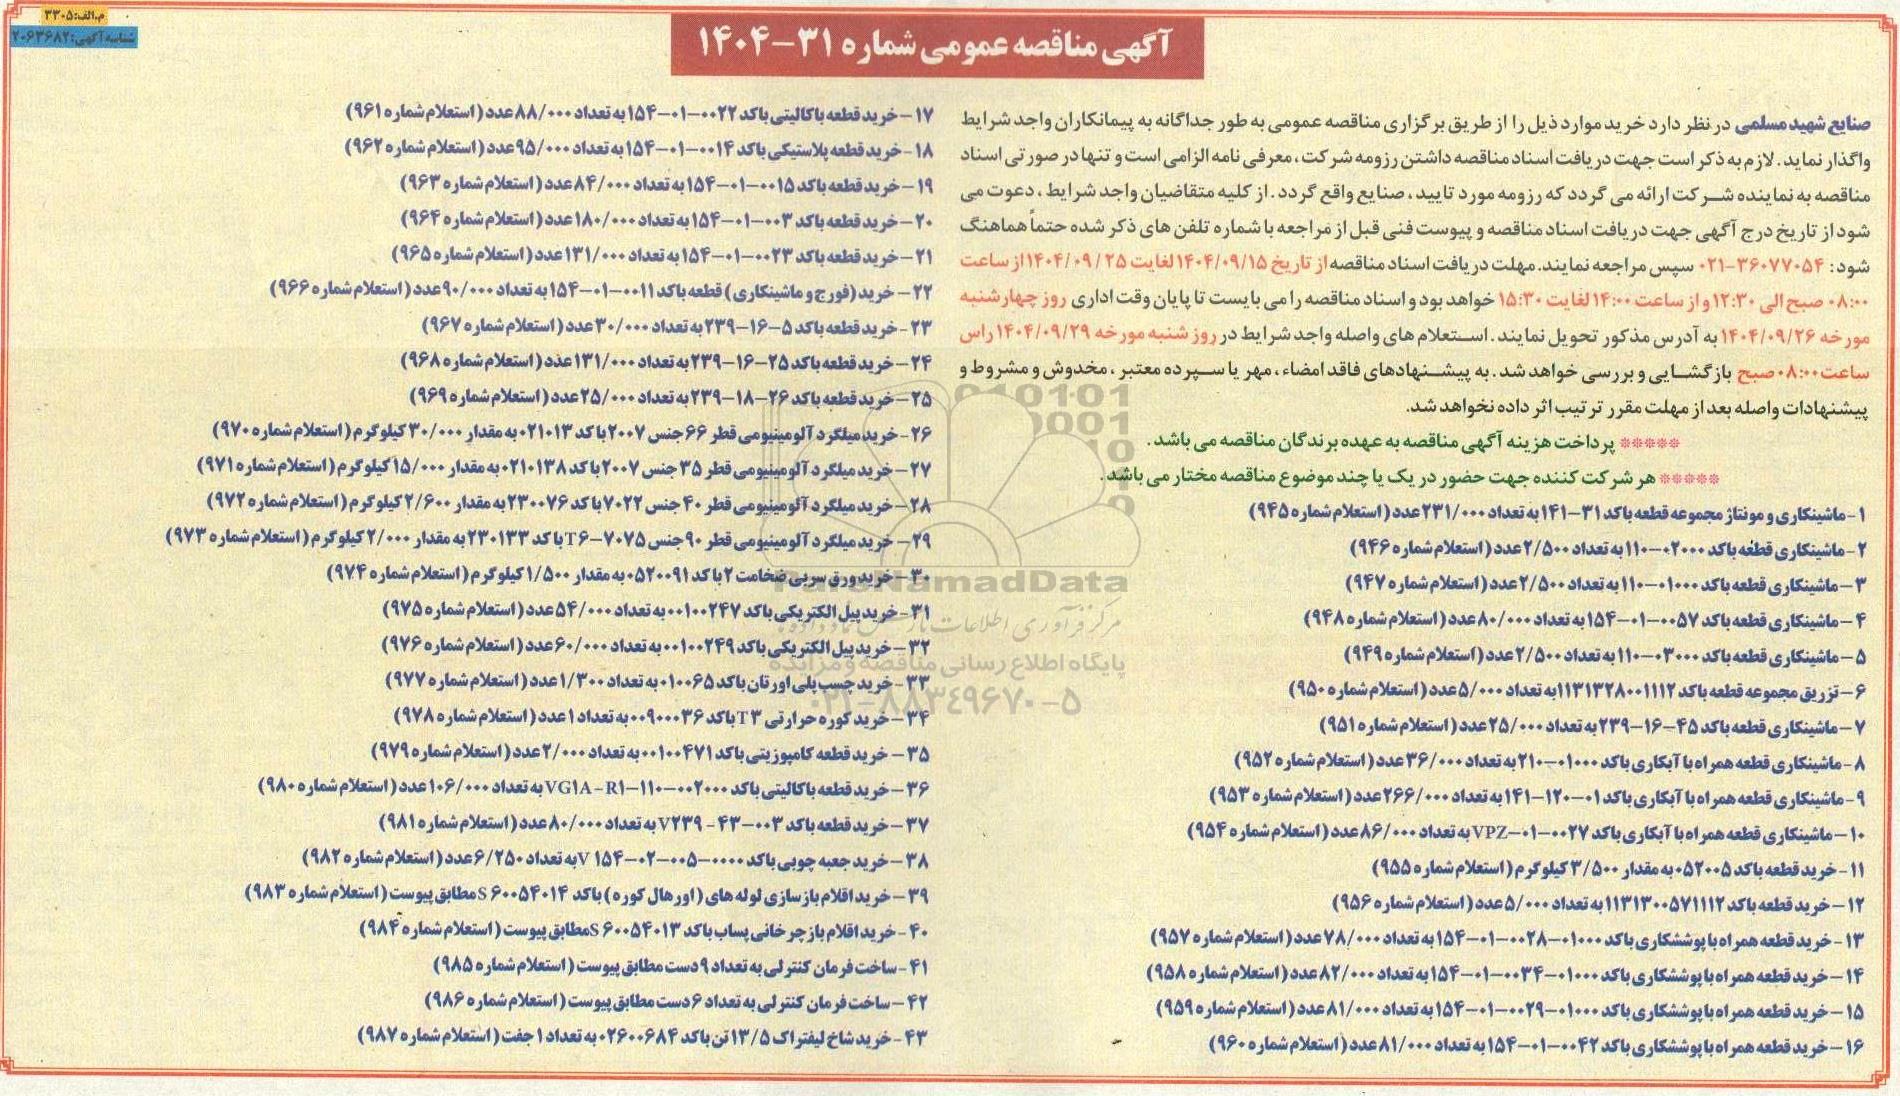 م.الف:۳۳۰۵
شناسه آگهی:۲۰۶۳۶۸۲
آگهی مناقصه عمومی شماره ۳۱-۱۴۰۴
صنایع شهید مسلمی در نظر دارد خرید موارد ذیل را از طریق برگزاری مناقصه عمومی به طور جداگانه به پیمانکاران واجد شرایط
واگذار نماید. لازم به ذکر است جهت دریافت اسناد مناقصه داشتن رزومه شرکت، معرفی نامه الزامی است و تنها در صورتی اسناد
مناقصه به نماینده شرکت ارائه می گردد که رزومه مورد تایید، صنایع واقع گردد. از کلیه متقاضیان واجد شرایط، دعوت می
شود از تاریخ درج آگهی جهت دریافت اسناد مناقصه و پیوست فنی قبل از مراجعه با شماره تلفن های ذکر شده حتماً هماهنگ
شود: ۳۶۰۷۷۰۵۴-۰۲۱ سپس مراجعه نمایند. مهلت دریافت اسناد مناقصه از تاریخ ۱۴۰۴/۰۹/۱۵ لغایت ۱۴۰۴/۰۹/۲۵ از ساعت
۰۸:۰۰ صبح الی ۱۲:۳۰ و از ساعت ۱۴:۰۰ لغایت ۱۵:۳۰ خواهد بود و اسناد مناقصه را می بایست تا پایان وقت اداری روز چهارشنبه
مورخه ۱۴۰۴/۰۹/۲۶ به آدرس مذکور تحویل نمایند. استعلام های واصله واجد شرایط در روز شنبه مورخه ۱۴۰۴/۰۹/۲۹ راس
ساعت ۰۸:۰۰ صبح بازگشایی و بررسی خواهد شد. به پیشنهادهای فاقد امضاء، مهر یا سپرده معتبر، مخدوش و مشروط و
پیشنهادات واصله بعد از مهلت مقرر ترتیب اثر داده نخواهد شد.
***** پرداخت هزینه آگهی مناقصه به عهده برندگان مناقصه می باشد.
***** هر شرکت کننده جهت حضور در یک یا چند موضوع مناقصه مختار می باشد.
۱- ماشینکاری و مونتاژ مجموعه قطعه باکد ۳۱-۱۴۱ به تعداد ۲۳۱/۰۰۰ عدد (استعلام شماره ۹۴۵)
۲- ماشینکاری قطعه باکد ۰۲۰۰۰-۱۱۰ به تعداد ۲/۵۰۰ عدد (استعلام شماره ۹۴۶)
۳- ماشینکاری قطعه باکد ۰۱۰۰۰-۱۱۰ به تعداد ۲/۵۰۰ عدد (استعلام شماره ۹۴۷)
۴- ماشینکاری قطعه باکد ۰۰۵۷-۰۱-۱۵۴ به تعداد ۸۰/۰۰۰ عدد (استعلام شماره ۹۴۸)
۵- ماشینکاری قطعه باکد ۰۳۰۰۰-۱۱۰ به تعداد ۲/۵۰۰ عدد (استعلام شماره ۹۴۹)
۶- تزریق مجموعه قطعه باکد ۱۱۳۱۳۲۸۰۰۱۱۱۲ به تعداد ۵/۰۰۰ عدد (استعلام شماره ۹۵۰)
۷- ماشینکاری قطعه باکد ۴۵-۱۶-۲۳۹ به تعداد ۲۵/۰۰۰ عدد (استعلام شماره ۹۵۱)
۸- ماشینکاری قطعه همراه با آبکاری باکد ۰۱۰۰۰-۲۱۰ به تعداد ۳۶/۰۰۰ عدد (استعلام شماره ۹۵۲)
۹- ماشینکاری قطعه همراه با آبکاری باکد ۰۱-۱۲۰-۱۴۱ به تعداد ۲۶۶/۰۰۰ عدد (استعلام شماره ۹۵۳)
۱۰- ماشینکاری قطعه همراه با آبکاری باکد ۰۰۲۷-۰۱-VPZ به تعداد ۸۶/۰۰۰ عدد (استعلام شماره ۹۵۴)
۱۱- خرید قطعه باکد ۰۵۲۰۰۵ به مقدار ۳/۵۰۰ کیلوگرم (استعلام شماره ۹۵۵)
۱۲- خرید قطعه باکد ۱۱۳۱۳۰۰۵۷۱۱۱۲ به تعداد ۵/۰۰۰ عدد (استعلام شماره ۹۵۶)
۱۳- خرید قطعه همراه با پوششکاری باکد ۰۱۰۰۰-۰۰۲۸-۰۱-۱۵۴ به تعداد ۷۸/۰۰۰ عدد (استعلام شماره ۹۵۷)
۱۴- خرید قطعه همراه با پوششکاری باکد ۰۱۰۰۰-۰۰۳۴-۰۱-۱۵۴ به تعداد ۸۲/۰۰۰ عدد (استعلام شماره ۹۵۸)
۱۵- خرید قطعه همراه با پوششکاری باکد ۰۱۰۰۰-۰۰۲۹-۰۱-۱۵۴ به تعداد ۸۱/۰۰۰ عدد (استعلام شماره ۹۵۹)
۱۶- خرید قطعه همراه با پوششکاری باکد ۰۰۴۲-۰۱-۱۵۴ به تعداد ۸۱/۰۰۰ عدد (استعلام شماره ۹۶۰)
۱۷- خرید قطعه باکالیتی باکد ۰۰۲۲-۰۱-۱۵۴ به تعداد ۸۸/۰۰۰ عدد (استعلام شماره ۹۶۱)
۱۸- خرید قطعه پلاستیکی باکد ۰۰۱۴-۰۱-۱۵۴ به تعداد ۹۵/۰۰۰ عدد (استعلام شماره ۹۶۲)
۱۹- خرید قطعه باکد ۰۰۱۵-۰۱-۱۵۴ به تعداد ۸۴/۰۰۰ عدد (استعلام شماره ۹۶۳)
۲۰- خرید قطعه باکد ۰۰۳-۰۱-۱۵۴ به تعداد ۱۸۰/۰۰۰ عدد (استعلام شماره ۹۶۴)
۲۱- خرید قطعه باکد ۰۰۲۳-۰۱-۱۵۴ به تعداد ۱۳۱/۰۰۰ عدد (استعلام شماره ۹۶۵)
۲۲- خرید (فورج و ماشینکاری) قطعه باکد ۰۰۱۱-۰۱-۱۵۴ به تعداد ۹۰/۰۰۰ عدد (استعلام شماره ۹۶۶)
۲۳- خرید قطعه باکد ۵-۱۶-۲۳۹ به تعداد ۳۰/۰۰۰ عدد (استعلام شماره ۹۶۷)
۲۴- خرید قطعه باکد ۲۵-۱۶-۲۳۹ به تعداد ۱۳۱/۰۰۰ عدد (استعلام شماره ۹۶۸)
۲۵- خرید قطعه باکد ۲۶-۱۸-۲۳۹ به تعداد ۲۵/۰۰۰ عدد (استعلام شماره ۹۶۹)
۲۶- خرید میلگرد آلومینیومی قطر ۶۶ جنس ۲۰۰۷ باکد ۰۲۱۰۱۳ به مقدار ۳۰/۰۰۰ کیلوگرم (استعلام شماره ۹۷۰)
۲۷- خرید میلگرد آلومینیومی قطر ۳۵ جنس ۲۰۰۷ باکد ۰۲۱۰۱۳۸ به مقدار ۱۵/۰۰۰ کیلوگرم (استعلام شماره ۹۷۱)
۲۸- خرید میلگرد آلومینیومی قطر ۴۰ جنس ۷۰۲۲ باکد ۲۳۰۰۷۶ به مقدار ۲/۶۰۰ کیلوگرم (استعلام شماره ۹۷۲)
۲۹- خرید میلگرد آلومینیومی قطر ۹۰ جنس ۷۰۷۵-T۶ باکد ۲۳۰۱۳۳ به مقدار ۲/۰۰۰ کیلوگرم (استعلام شماره ۹۷۳)
۳۰- خرید ورق سربی ضخامت ۲ باکد ۰۵۲۰۰۹۱ به مقدار ۱/۵۰۰ کیلوگرم (استعلام شماره ۹۷۴)
۳۱- خرید پیل الکتریکی باکد ۰۰۱۰۰۲۴۷ به تعداد ۵۴/۰۰۰ عدد (استعلام شماره ۹۷۵)
۳۲- خرید پیل الکتریکی باکد ۰۰۱۰۰۲۴۹ به تعداد ۶۰/۰۰۰ عدد (استعلام شماره ۹۷۶)
۳۳- خرید چسب پلی اورتان باکد ۰۱۰۰۶۵ به تعداد ۱/۳۰۰ عدد (استعلام شماره ۹۷۷)
۳۴- خرید کوره حرارتی T۳ باکد ۰۰۹۰۰۰۳۶ به تعداد ۱ عدد (استعلام شماره ۹۷۸)
۳۵- خرید قطعه کامپوزیتی باکد ۰۰۱۰۰۴۷۱ به تعداد ۲/۰۰۰ عدد (استعلام شماره ۹۷۹)
۳۶- خرید قطعه باکالیتی باکد ۰۰۲۰۰۰-۱۱۰-VG۱A-R۱ به تعداد ۱۰۶/۰۰۰ عدد (استعلام شماره ۹۸۰)
۳۷- خرید قطعه باکد ۰۰۳-۴۳-V۲۳۹ به تعداد ۸۰/۰۰۰ عدد (استعلام شماره ۹۸۱)
۳۸- خرید جعبه چوبی باکد ۰۰۰۰-۰۰۵-۰۲-V ۱۵۴ به تعداد ۶/۲۵۰ عدد (استعلام شماره ۹۸۲)
۳۹- خرید اقلام بازسازی لوله های (اورهال کوره) باکد S ۶۰۰۵۴۰۱۴ مطابق پیوست (استعلام شماره ۹۸۳)
۴۰- خرید اقلام بازچرخانی پساب باکد S ۶۰۰۵۴۰۱۳ مطابق پیوست (استعلام شماره ۹۸۴)
۴۱- ساخت فرمان کنترلی به تعداد ۹ دست مطابق پیوست (استعلام شماره ۹۸۵)
۴۲- ساخت فرمان کنترلی به تعداد ۶ دست مطابق پیوست (استعلام شماره ۹۸۶)
۴۳- خرید شاخ لیفتراک ۱۳/۵ تن باکد ۰۲۶۰۰۶۸۴ به تعداد ۱ جفت (استعلام شماره ۹۸۷)
ParsNamadData
پایگاه اطلاع رسانی مناقصه و مزایده
۰۲۱-۸۸۳۴۹۶۷۰-۵